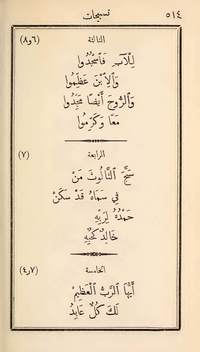 تسبيحات ٥١٤
الثالثة (٦ و٨)
لِلْآبِ فَاسْجُدُوا
وَالِابْنَ عَظِّمُوا
وَالرُّوحَ أَيْضًا مَجِّدُوا
مَعًا وَكَرِّمُوا
الرابعة (٧)
سَبِّحِ الثَّالُوثَ مَنْ
فِي سَمَاهُ قَدْ سَكَنْ
حَمْدُهُ لِرَبِّهِ
خَالِدٌ كَحُبِّهِ
الخامسة (٧و٤)
أَيُّهَا الرَّبُّ الْعَظِيمْ
لَكَ كُلٌّ عَابِدُ